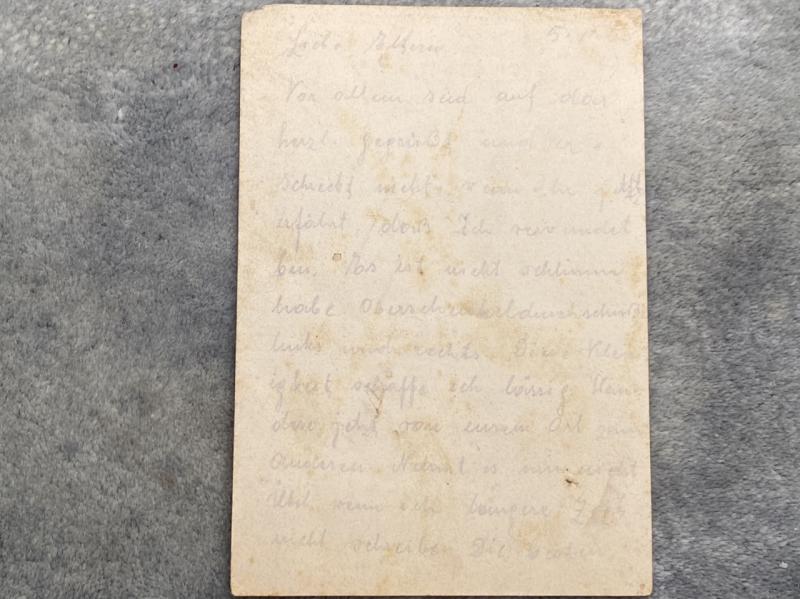 Liebe Eltern 5.
Vor allem seid auf das
herzl. gegrüßt und er
schreckt nicht wenn ihr
erfährt, daß Ich verwundet
bin. Es Ist nicht schlimm
habe Oberschenkeldurchschuß
links und rechts. Diese Klei
igkeit schaffe ich lässig
jetzt von einem Ort zum
anderen Nehmt es mir nicht
Übel wenn ich längere Zeit
nicht schreibe. Die